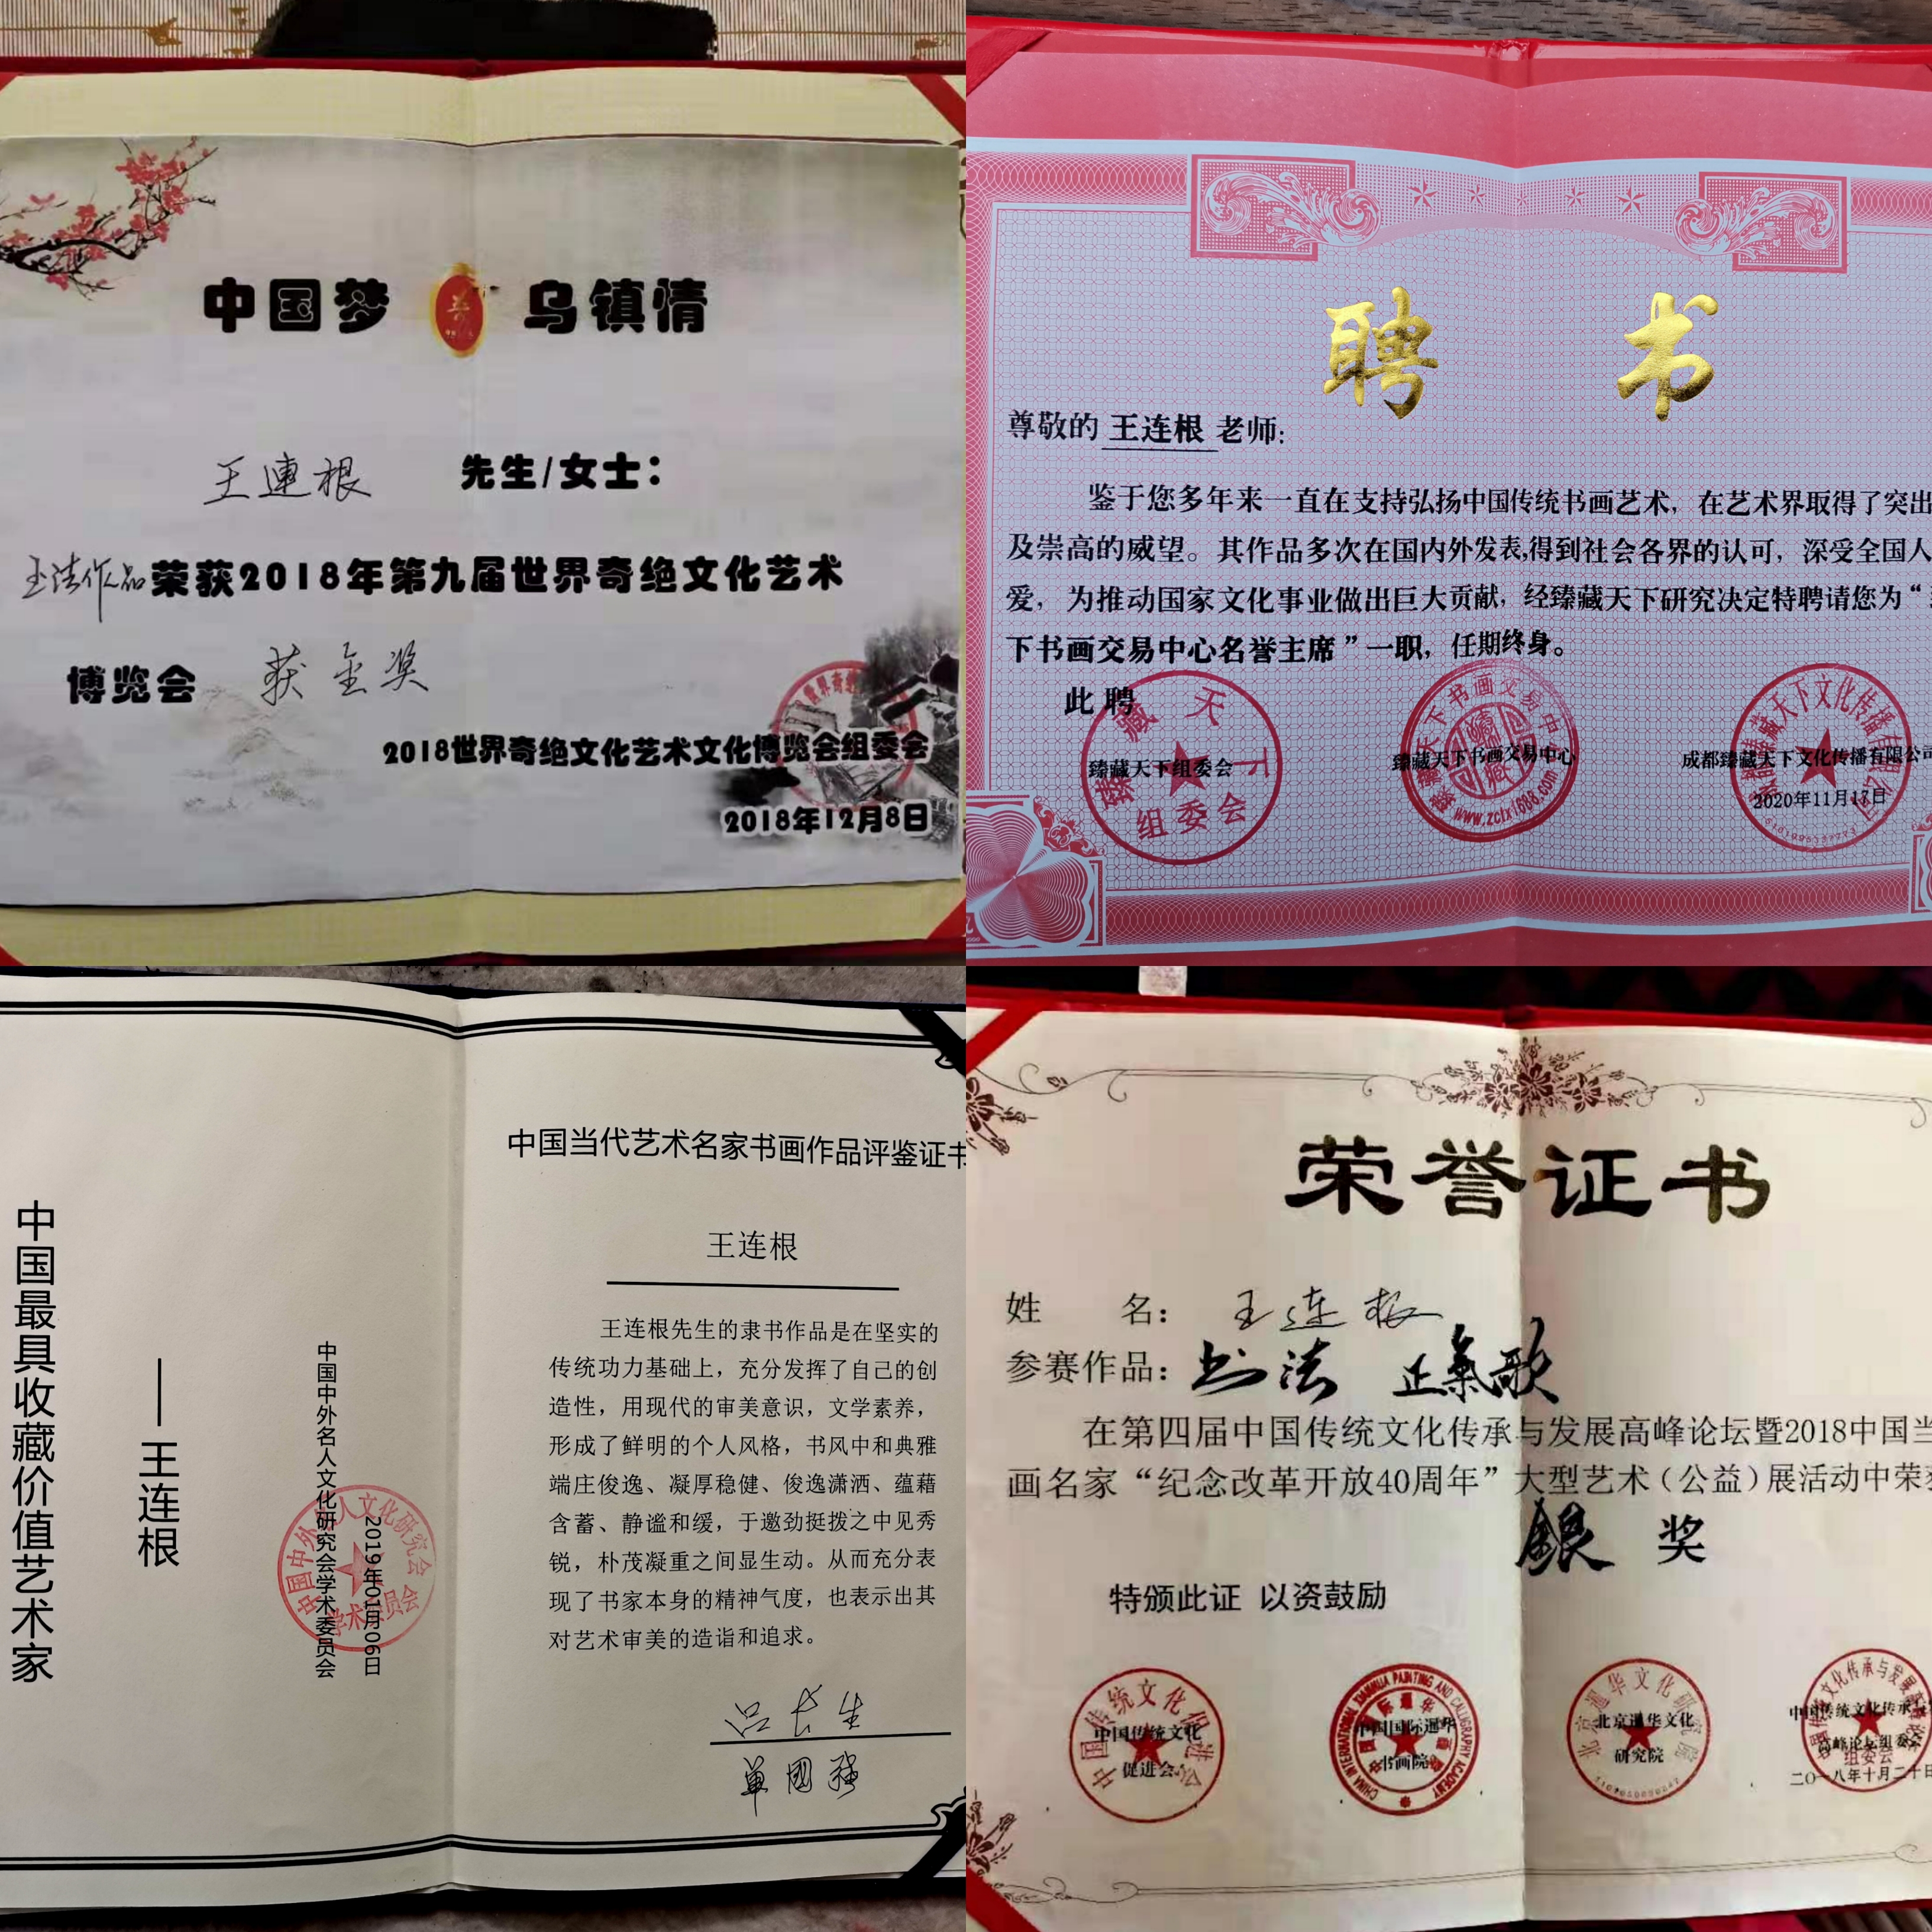 中国梦 乌镇情
王連根 先生/女士：
书法作品荣获2018年第九届世界奇绝文化艺术
博览会 获金奖
2018世界奇绝文化艺术文化博览会组委会
2018年12月8日
聘 书
尊敬的 王连根 老师：
鉴于您多年来一直在支持弘扬中国传统书画艺术，在艺术界取得了突出
及崇高的威望。其作品多次在国内外发表,得到社会各界的认可，深受全国人
爱，为推动国家文化事业做出巨大贡献，经臻藏天下研究决定特聘请您为“
下书画交易中心名誉主席”一职，任期终身。
此聘
臻藏天下组委会
臻藏天下书画交易中心
成都臻藏天下文化传播有限公司
2020年11月17日
臻藏天下
组委会
臻藏天下书画交易中心
www.zctx1688.com
中国最具收藏价值艺术家
——王连根
中国中外名人文化研究会学术委员会
2019年01月06日
中国中外名人文化研究会
学术委员会
中国当代艺术名家书画作品评鉴证书
王连根
王连根先生的隶书作品是在坚实的
传统功力基础上，充分发挥了自己的创
造性，用现代的审美意识，文学素养，
形成了鲜明的个人风格，书风中和典雅
端庄俊逸、凝厚稳健、俊逸潇洒、蕴藉
含蓄、静谧和缓，于遒劲挺拨之中见秀
锐，朴茂凝重之间显生动。从而充分表
现了书家本身的精神气度，也表示出其
对艺术审美的造诣和追求。
單國強
荣誉证书
姓 名：王连根
参赛作品：书法 正氣歌
在第四届中国传统文化传承与发展高峰论坛暨2018中国当
画名家“纪念改革开放40周年”大型艺术（公益）展活动中荣获
銀 奖
特颁此证 以资鼓励
中国传统文化
促进会
中国国际逦华
书画院
CHINA INTERNATIONAL XIANHUA PAINTING AND CALLIGRAPHY ACADEMY
北京逦华文化
研究院
中国传统文化传承与
高峰论坛组委会
二〇一八年十月二十日